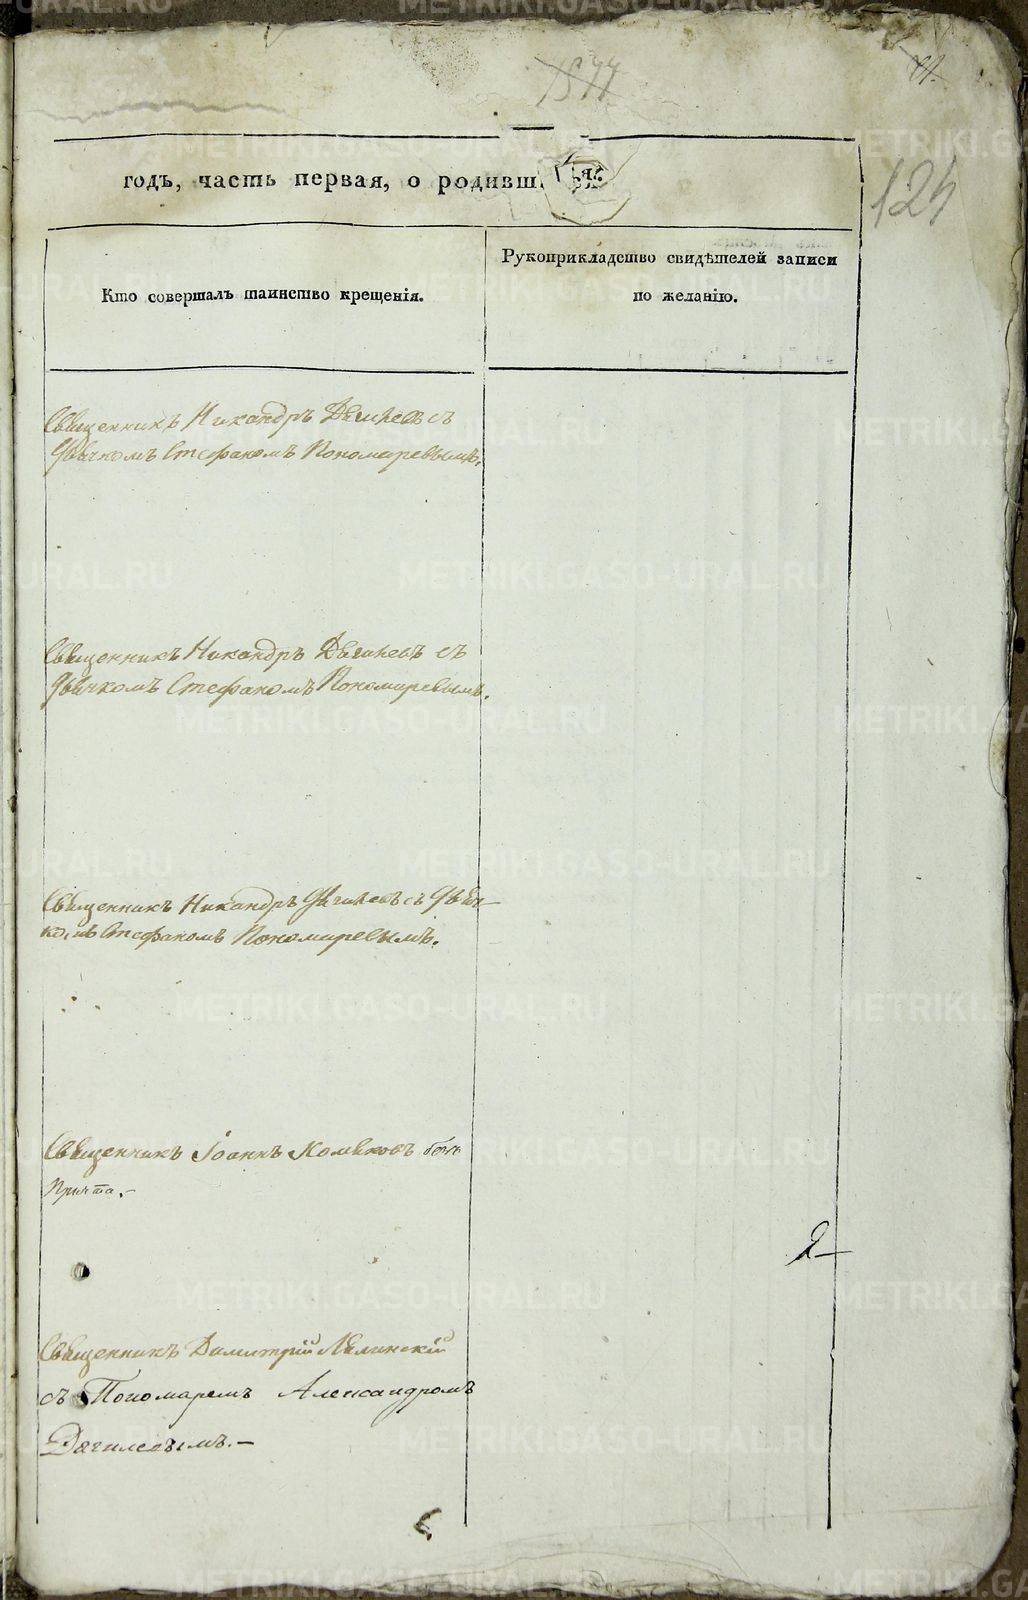 годъ, часть первая, о родивш
Кто совершалъ таинство крещенія.
Рукоприкладство свидѣтелей записи
по желанію.
124
Священникъ Никандръ съ
Дьячкомъ Стефаномъ Пономаревымъ.
Священникъ Никандръ съ
Дьячкомъ Стефаномъ Пономаревымъ.
Священникъ Никандръ съ Дьяч-
комъ Стефаномъ Пономаревымъ.
Священникъ Іоаннъ безъ
Причта.-
Священникъ Димитрій
съ Пономаремъ Александромъ
Дягилевымъ.-
METRIKI.GASO-URAL.RU